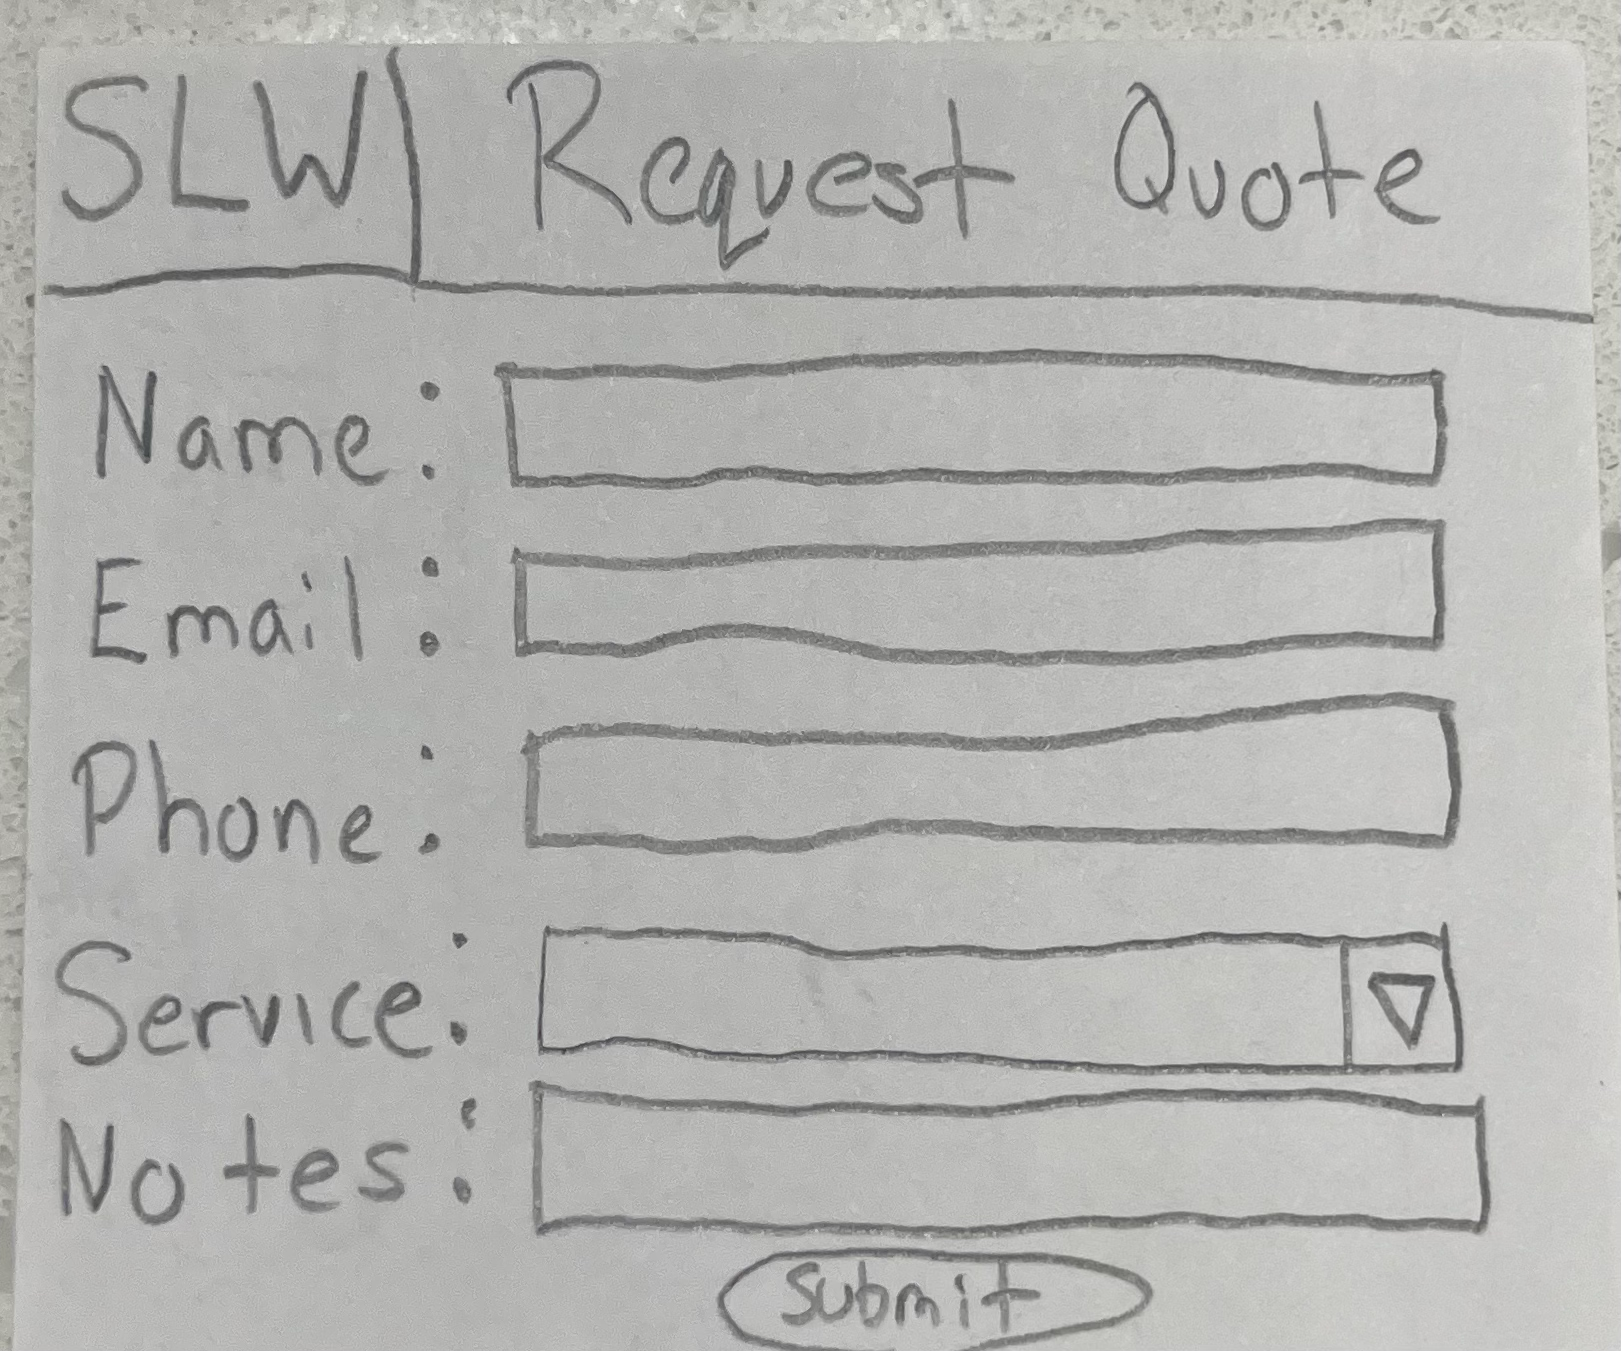 SLW Request Quote
Name:
Email:
Phone:
Service:
Notes:
Submit